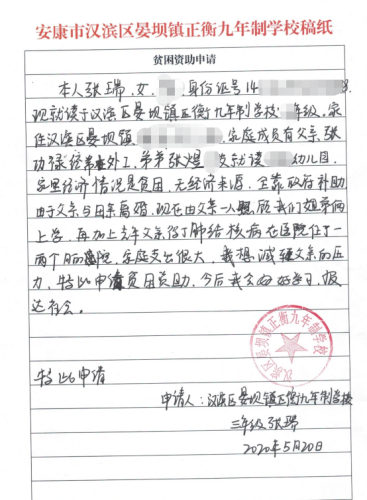 安康市汉滨区晏坝镇正衡九年制学校稿纸
贫困资助申请
本人张瑞，女，身份证号14
现就读于汉滨区晏坝镇正衡九年制学校 年级，家
住汉滨区晏坝镇 ，家庭成员有父亲，张
功禄经常在外工，弟弟张煜 就读 幼儿园，
家里经济情况是贫困，无经济来源，全靠政府补助
由于父亲与母亲离婚，现在由父亲一人照顾我们姐弟俩
上学，再加上去年父亲得了肺结核病在医院住了一
两个月的院，家庭支出很大，我想减轻父亲的压
力，特此申请贫困资助，今后我会好好学习，报
达社会。
特此申请
申请人：汉滨区晏坝镇正衡九年制学校
三年级 张瑞
2020年5月20日
汉滨区晏坝镇正衡九年制学校